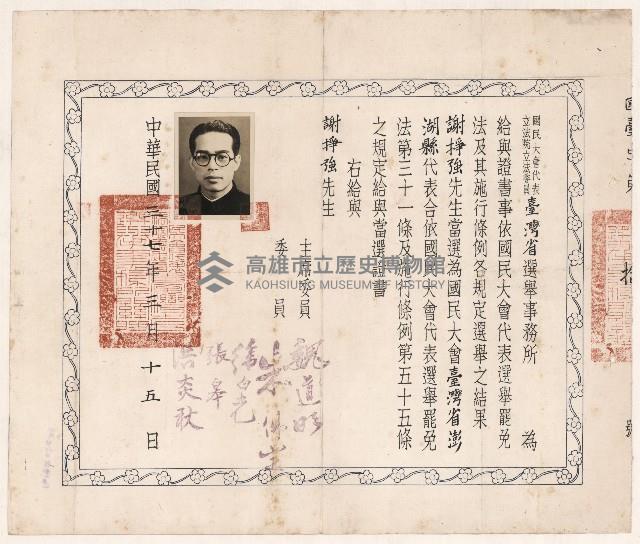 國民大會代表
立法院立法委員
臺灣省選舉事務所 為
給與證書事依國民大會代表選舉罷免
法及其施行條例各規定選舉之結果
謝掙強先生當選為國民大會臺灣省澎
湖縣代表合依國民大會代表選舉罷免
法第三十一條及施行條例第五十五條
之規定給與當選證書
右給與
謝掙強先生
主席委員
委員
魏道明
張皋
洪炎秋
中華民國三十七年三月十五日
高雄市立歷史博物館
KAOHSIUNG MUSEUM OF HISTORY